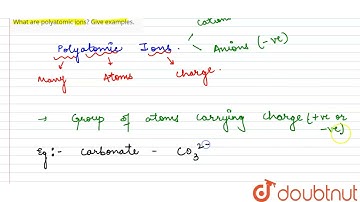 What are polyatomic ions? Give examples.
cation
Polyatomic Ions. < Anions (-ve)
Many Atoms Charge.
→ Group of atoms carrying charge (+ve or
-ve)
Eg:- Carbonate - CO₃²⁻
doubtnut